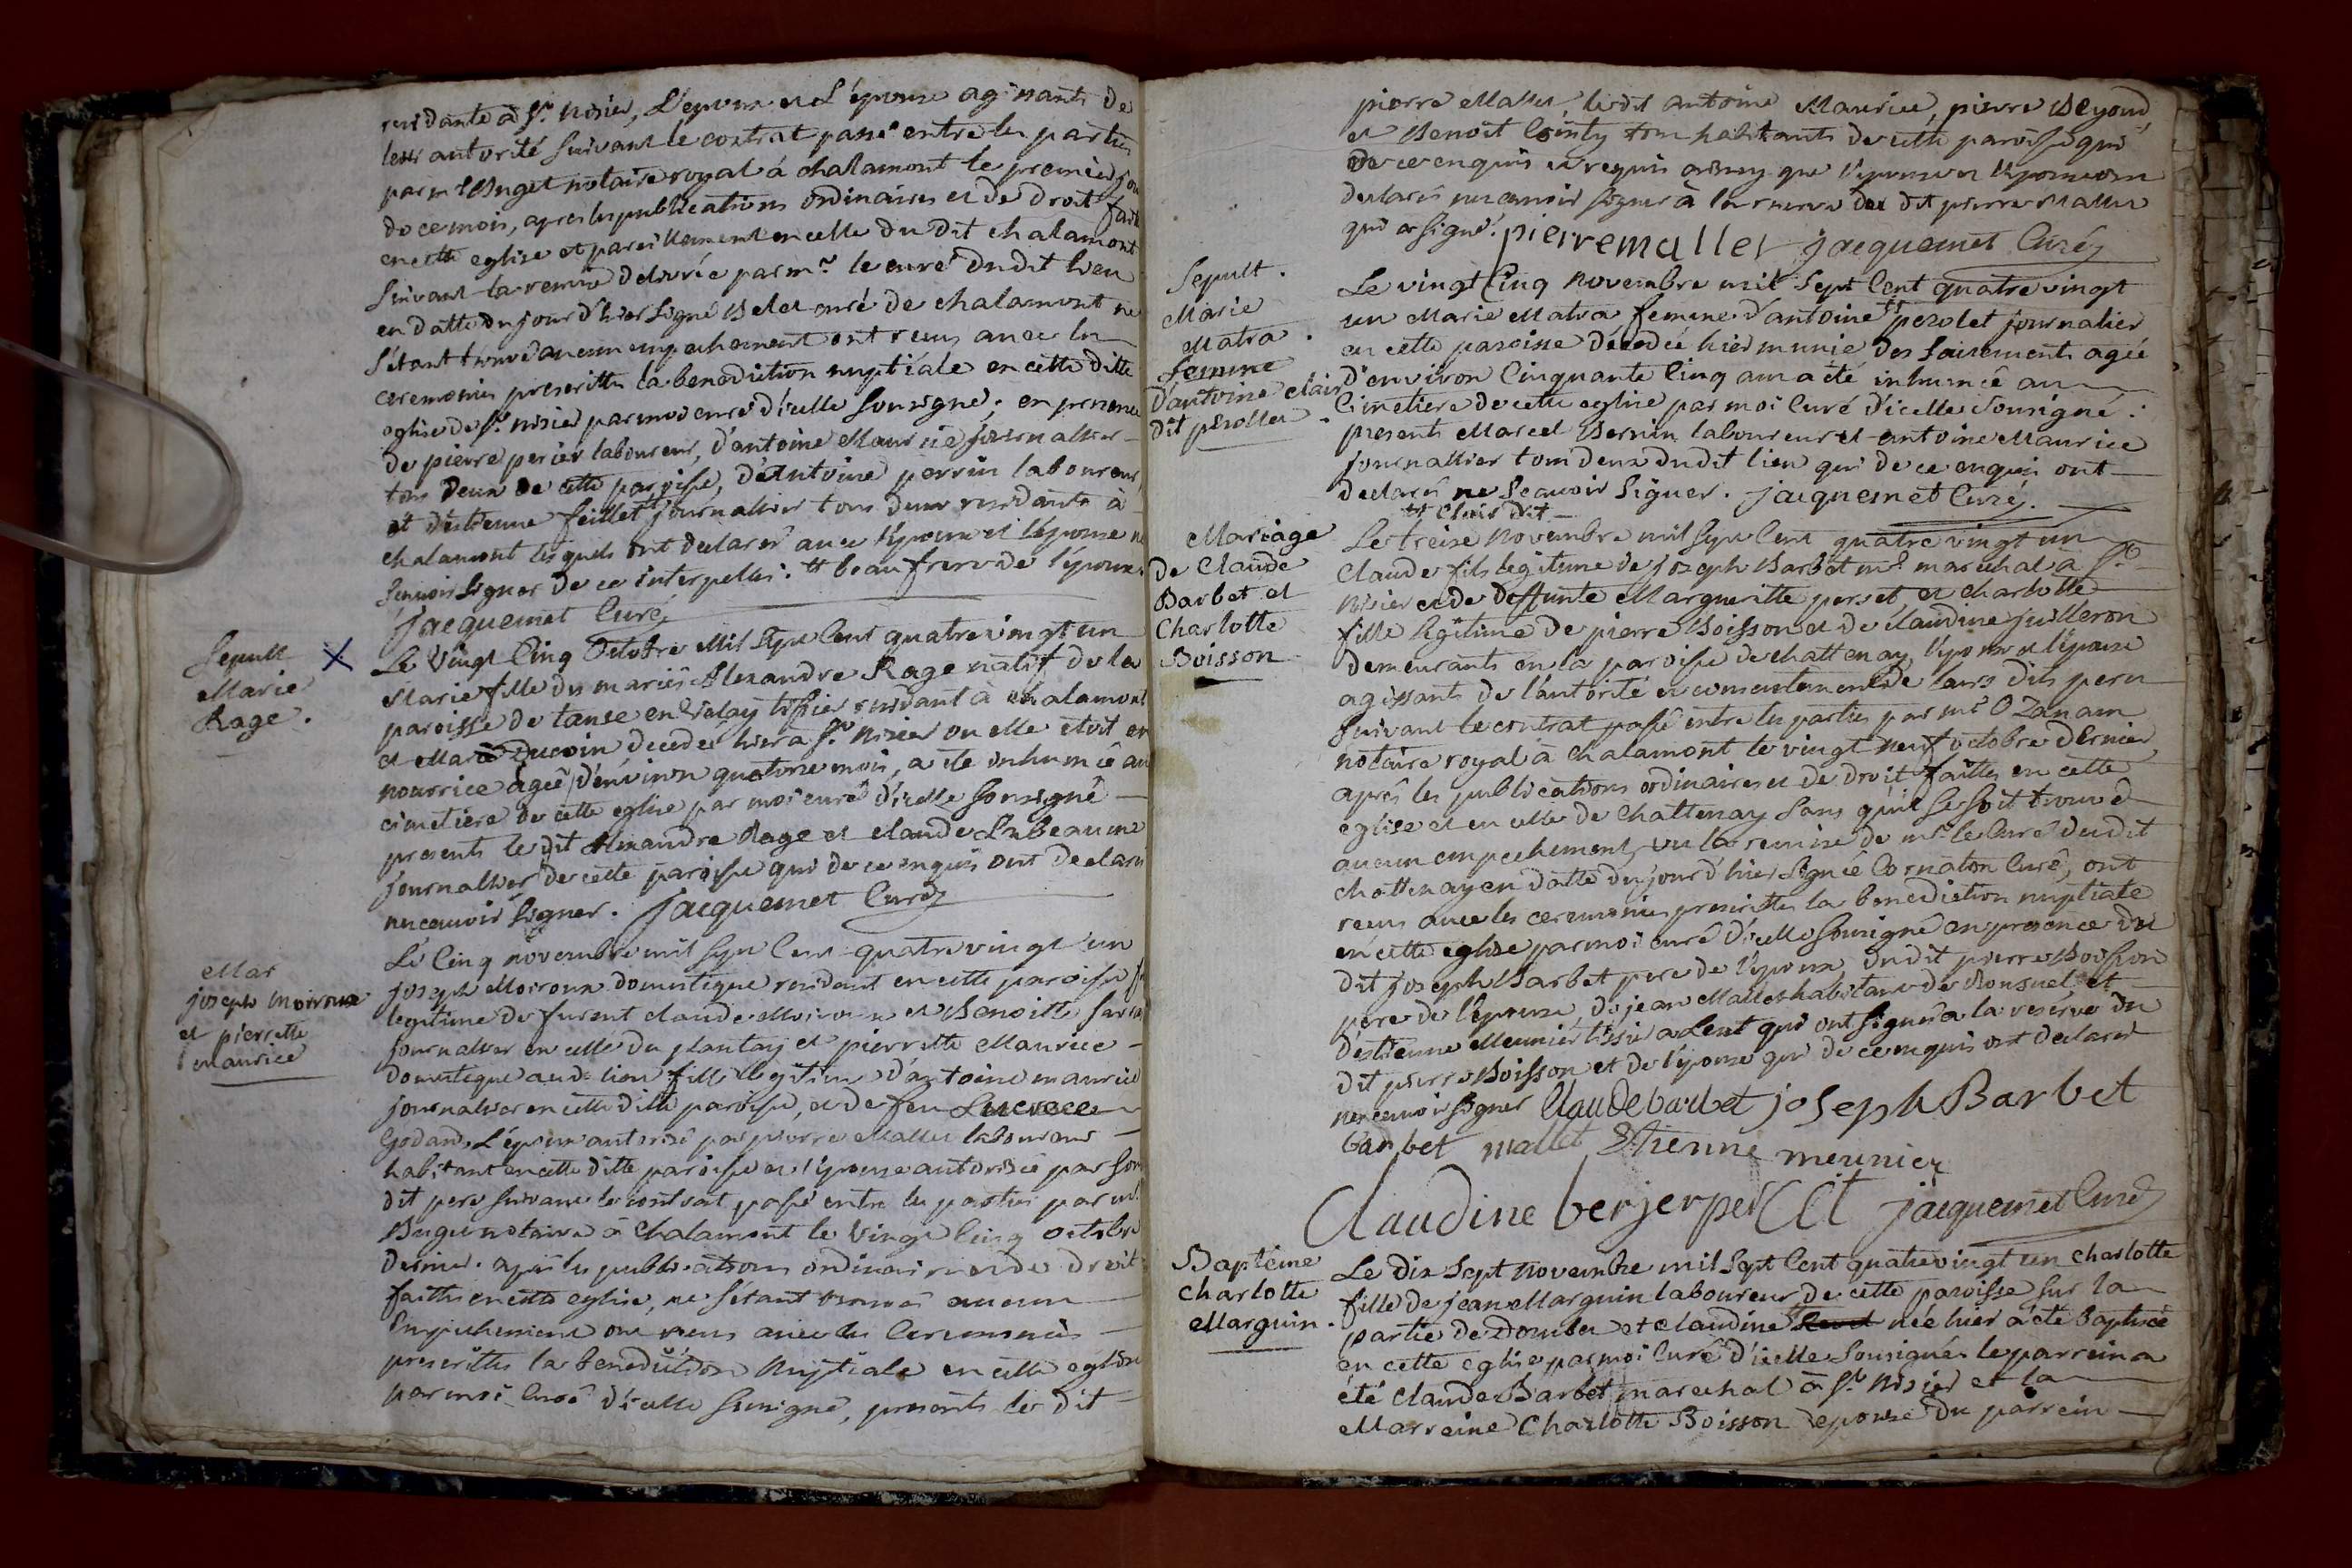 residante à St. Nisier, L'epoux et L'epouse agissants de
leur autorité suivant le contrat passé entre les parties
par me Buget notaire royal à chalamont le premier
de ce mois, apres les publications ordinaires et de droit faites
en cette eglise et pareillement en celle du dit chalamont
suivant la remise delivrée par mr. le curé du dit lieu
en datte du jour d'hier signé curé de chalamont ne
s'etant trouvé aucun empechement ont reçus avec les
ceremonies prescrittes la benediction nuptiale en cette ditte
eglise de St. nisier par moi curé d'icelle soussigné; en presence
de pierre perier laboureur, d'antoine Maurice journallier
tous deux de cette paroisse, d'Antoine perrin laboureur,
et d'estienne feillet journallier tous deux residants à
chalamont lesquels ont declarés avec l'epoux et l'epouse ne
sçavoir signer de ce interpellés. tt beau frere de l'epoux.
Jacquemet Curé
Sepult
Marie
Rage.
Le Vingt Cinq Octobre Mil Sept Cent quatre vingt un
Marie fille des mariés Alexandre Rage natif de la
paroisse de tanse en Velay tissier residant à chalamont
et Marie Ducoin decedée hier à St. Nisier ou elle etoit en
nourrice agée d'environ quatorze mois, a ete inhumée au
cimetiere de cette eglise par moi curé d'icelle soussigné
presents le dit Alexandre Rage et claude Labeaume
journallier de cette paroisse qui de ce enquis ont declaré
ne sçavoir signer. Jacquemet Curé
Mar
joseph Moiroux
et pierrette
Maurice
Le Cinq novembre mil Sept Cent quatre vingt un
joseph Moiroux domestique residant en cette paroisse
legitime de furent claude Moiroux et Benoitte
journallier en celle du plantay et pierrette Maurice
domestique au d. lieu fille legitime d'antoine maurice
journallier en cette ditte paroisse, et de feu Lucrece
Godard, L'epoux autorisé par pierre Mallet laboureur
habitant en cette ditte paroisse et l'epouse autorisée par son
dit pere suivant le contrat passé entre les parties par me
Buget notaire à Chalamont le Vingt Cinq octobre
dernier. après les publications ordinaires et de droit
faittes en cette eglise, ne s'etant trouvés aucun
Empechement ont reçus avec les Ceremonies
prescrittes la benediction Nuptiale en cette eglise
par moi Curé d'icelle soussigné, presents le dit
pierre Mallet le dit antoine Maurice, pierre Beyoud
et Benoit Cointy tous habitants de cette paroisse qui
de ce enquis et requis que l'epoux et l'epouse ont
declarés ne sçavoir signer à la reserve du dit pierre Mallet
qui a signé. pierre mallet Jacquemet Curé
Sepult.
Marie
Matra
femme
D'antoine clair
dit perollet
Le vingt Cinq Novembre mil Sept Cent quatre vingt
un Marie Matra femme d'antoine tt perolet journalier
en cette paroisse décedée hier munie des Sacrements agée
d'environ Cinquante Cinq ans a été inhumée au
Cimetiere de cette eglise par moi Curé d'icelle soussigné :
presents Marcel Bernin laboureur et antoine Maurice
journallier tous deux du dit lieu qui de ce enquis ont
declarés ne sçavoir signer. jacquemet Curé.
tt Clair dit
Mariage
De Claude
Barbet et
Charlotte
Boisson
Le treize Novembre mil Sept Cent quatre vingt un
Claude fils legitime de joseph Barbet me. marechal à St.
Nisier et de deffunte Margueritte perset, et charlotte
fille legitime de pierre Boisson et de claudine juilleron
demeurants en la paroisse de chattenay, l'epoux et l'epouse
agissants de l'autorité et consentement de leurs dits peres
suivant le contrat passé entre les parties par me Ozanam
notaire royal à Chalamont le vingt neuf octobre dernier,
aprés les publications ordinaires et de droit faittes en cette
eglise et en celle de Chattenay sans qu'il se soit trouvé
aucun empechement, vu la remise de mr. le Curé du dit
chattenay en datte du jour d'hier signée Cornaton Curé, ont
reçus avec les ceremonies prescrittes la benediction nuptiale
en cette eglise par moi curé d'icelle soussigné en presence du
dit joseph Barbet pere de l'epoux, du dit pierre Boisson
pere de l'epouse, de jean Mallet habitant de Ronsuel, et
d'estienne Meunier tissier à Lent qui ont signés à la reserve du
dit pierre Boisson et de l'epouse qui de ce enquis ont declarés
ne sçavoir signer Claude barbet joseph Barbet
barbet mallet Etienne meunier
Claudine berjer jacquemet Curé
Baptéme
Charlotte
Marguin.
Le dix Sept Novembre mil Sept Cent quatre vingt un Charlotte
fille de jean Marguin laboureur de cette paroisse sur la
partie de Dombes et claudine née hier a été baptisée
en cette eglise par moi Curé d'icelle soussigné le parrein a
été Claude Barbet marechal à St. Nisier et la
Marreine Charlotte Boisson epouse du parrein